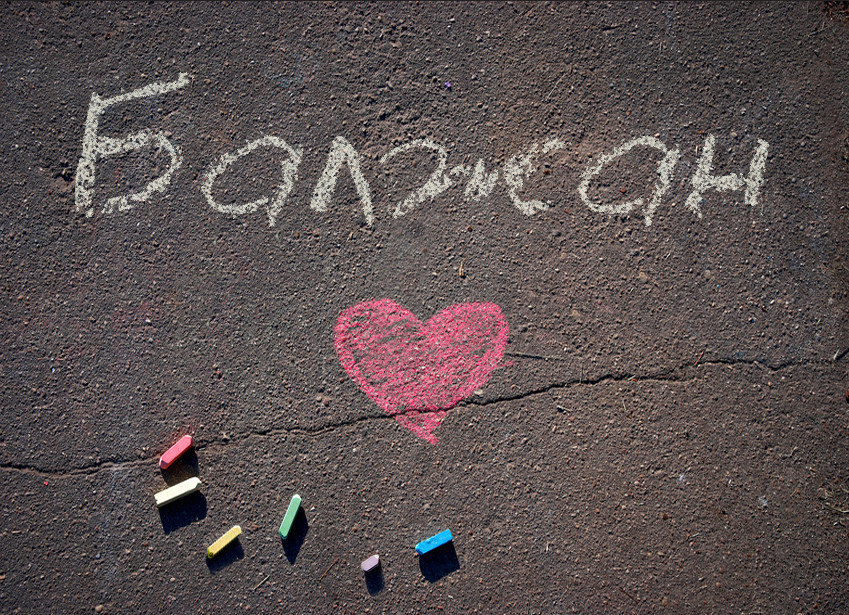 Балжан